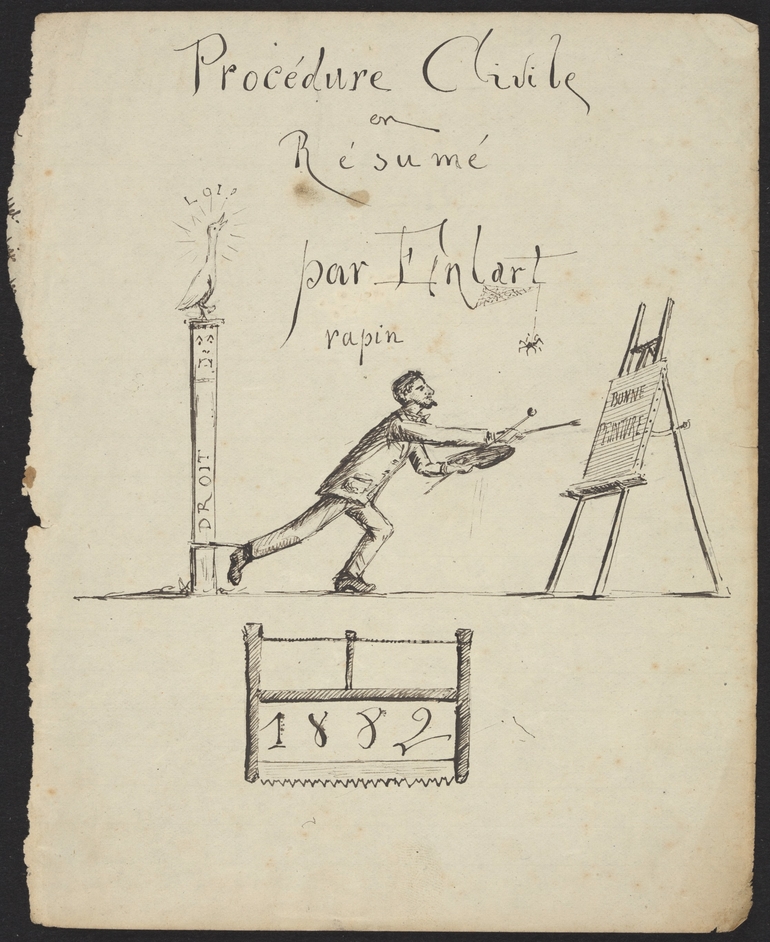 Procédure Civile
en
Résumé
LOIS
par Enlart
rapin
BONNE
PEINTURE
DROIT
1882